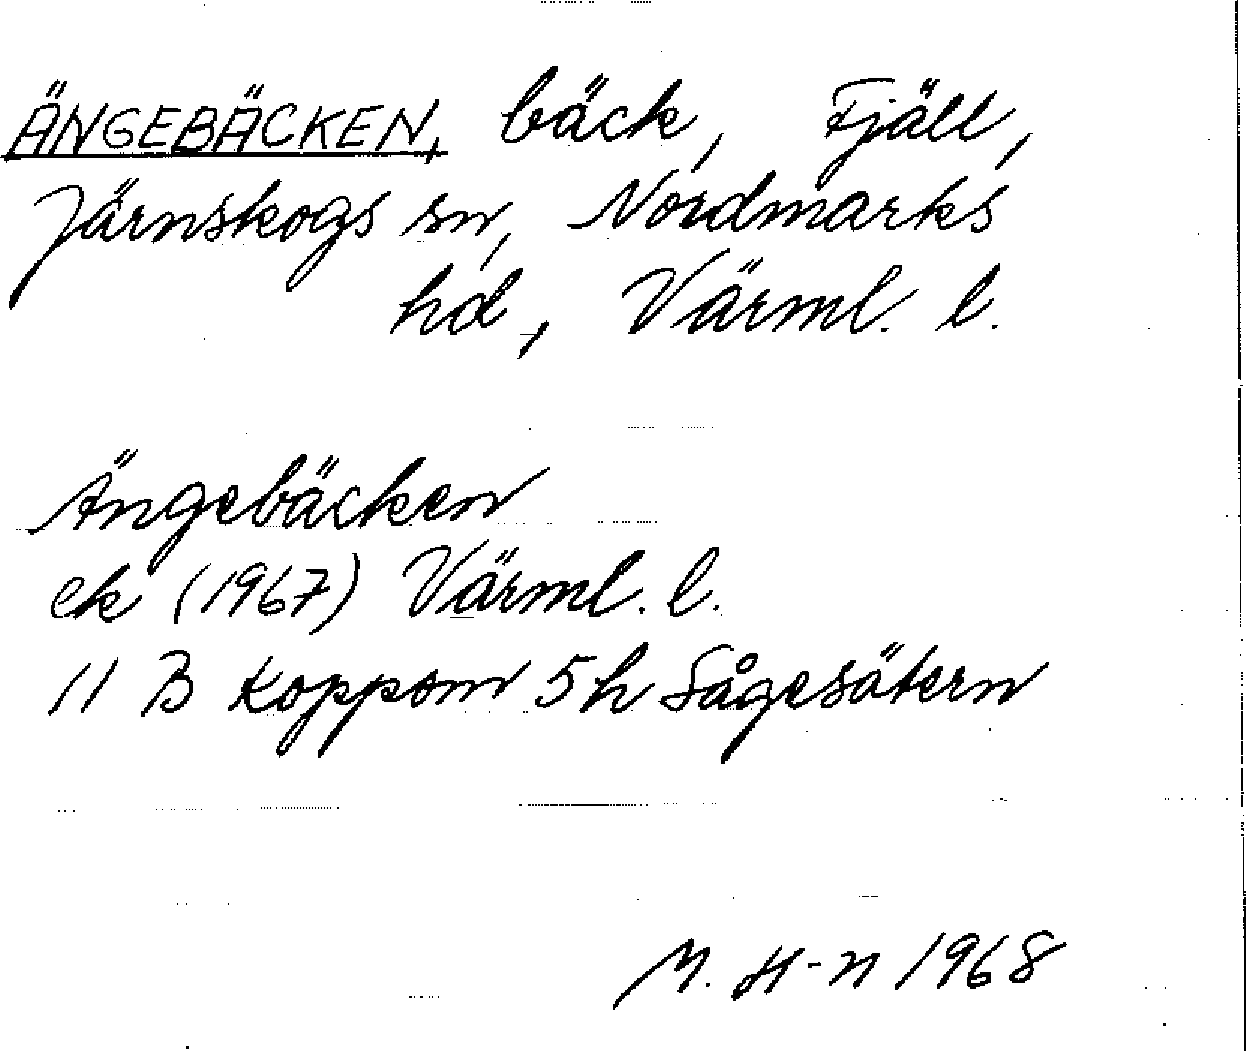 ÄNGEBÄCKEN, bäck, Fjäll,
Järnskogs sn, Nordmarks
hd, Värml. l.
Ängebäcken
ek (1967) Värml. l.
11 B Koppom 5h Sågesätern
M. H-n 1968